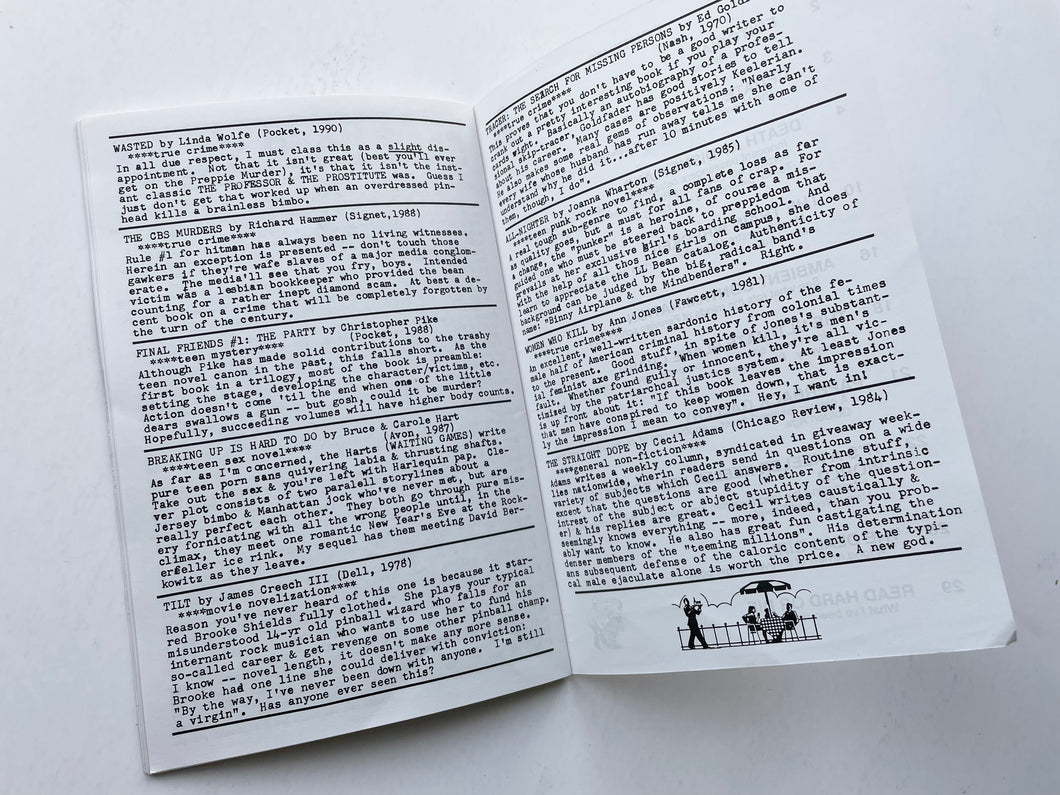 WASTED by Linda Wolfe (Pocket, 1990)
****true crime****
In all due respect, I must class this as a slight dis-
appointment. Not that it isn't great (best you'll ever
get on the Preppie Murder), it's that it isn't the inst-
ant classic THE PROFESSOR & THE PROSTITUTE was. Guess I
just don't get that worked up when an overdressed pin-
head kills a brainless bimbo.
THE CBS MURDERS by Richard Hammer (Signet,1988)
****true crime****
Rule #1 for hitman has always been no living witnesses.
Herein an exception is presented -- don't touch those
gawkers if they're wafe slaves of a major media conglom-
erate. The media'll see that you fry, boys. Intended
victim was a lesbian bookkeeper who provided the bean
counting for a rather inept diamond scam. At best a de-
cent book on a crime that will be completely forgotten by
the turn of the century.
FINAL FRIENDS #1: THE PARTY by Christopher Pike
****teen mystery**** (Pocket, 1988)
Although Pike has made solid contributions to the trashy
teen novel canon in the past, this falls short. As the
first book in a trilogy, most of the book is preamble:
setting the stage, developing the character/victims, etc.
Action doesn't come 'til the end when one of the little
dears swallows a gun -- but gosh, could it be murder?
Hopefully, succeeding volumes will have higher body counts.
BREAKING UP IS HARD TO DO by Bruce & Carole Hart
****teen sex novel**** (Avon, 1987)
As far as I'm concerned, the Harts (WAITING GAMES) write
pure teen porn sans quivering labia & thrusting shafts.
Take out the sex & you're left with Harlequin pap. Cle-
ver plot consists of two paralell storylines about a
Jersey bimbo & Manhattan jock who've never met, but are
really perfect each other. They both go through pure mis-
ery fornicating with all the wrong people until, in the
climax, they meet one romantic New Year's Eve at the Rock-
erfeller ice rink. My sequel has them meeting David Ber-
kowitz as they leave.
TILT by James Creech III (Dell, 1978)
****movie novelization****
Reason you've never heard of this one is because it star-
red Brooke Shields fully clothed. She plays your typical
misunderstood 14-yr old pinball wizard who falls for an
internant rock musician who wants to use her to fund his
so-called career & get revenge on some other pinball champ.
I know -- novel length, it doesn't make any more sense.
Brooke had one line she could deliver with conviction:
"By the way, I've never been down with anyone. I'm still
a virgin". Has anyone ever seen this?
TRACER: THE SEARCH FOR MISSING PERSONS by Ed
****true crime**** (Nash, 1970)
This proves that you don't have to be a good writer to
crank out a pretty interesting book if you play your
cards right. Basically an autobiography of a profes-
sional skip-tracer, Goldfader has good stories to tell
about his career. Many cases are positively Keelerian.
He also makes some real gems of observations: "Nearly
every wife whose husband has run away tells me she can't
understand why he did it...after 10 minutes with some of
them, though, I do".
ALL-NIGHTER by Joanna Wharton (Signet, 1985)
****teen punk rock novel****
A real tough sub-genre to find, a complete loss as far
as quality goes, but a must for all fans of crap. For
a change, the "punker" is a heroine, of course a mis-
guided one who must be steered back to preppiedom that
prevails at her exclusive girl's boarding school. And
with the help of all thos nice girls on campus, she does
learn to appreciate the LL Bean catalog. Authenticity of
background can be judged by the big, radical band's
name: "Binny Airplane & the Mindbenders". Right.
WOMEN WHO KILL by Ann Jones (Fawcett, 1981)
****true crime****
An excellent, well-written sardonic history of the fe-
male half of American criminal history from colonial times
to the present. Good stuff, in spite of Jones's substant-
ial feminist axe grinding. When women kill, it's men's
fault. Whether found guily or innocent, they're all vic-
timised by the patriarchcal justice system. At least Jones
is up front about it: "If this book leaves the impression
that men have conspired to keep women down, that is exact-
ly the impression I mean to convey". Hey, I want in!
THE STRAIGHT DOPE by Cecil Adams (Chicago Review, 1984)
****general non-fiction****
Adams writes a weekly column, syndicated in giveaway week-
lies nationwide, wherein readers send in questions on a wide
variety of subjects which Cecil answers. Routine stuff,
except that the questions are good (whether from intrinsic
intrest of the subject or abject stupidity of the question-
er) & his replies are great. Cecil writes caustically &
seemingly knows everything -- more, indeed, than you prob-
ably want to know. He also has great fun castigating the
denser members of the "teeming millions". His determination
ans subsequent defense of the caloric content of the typi-
cal male ejaculate alone is worth the price. A new god.